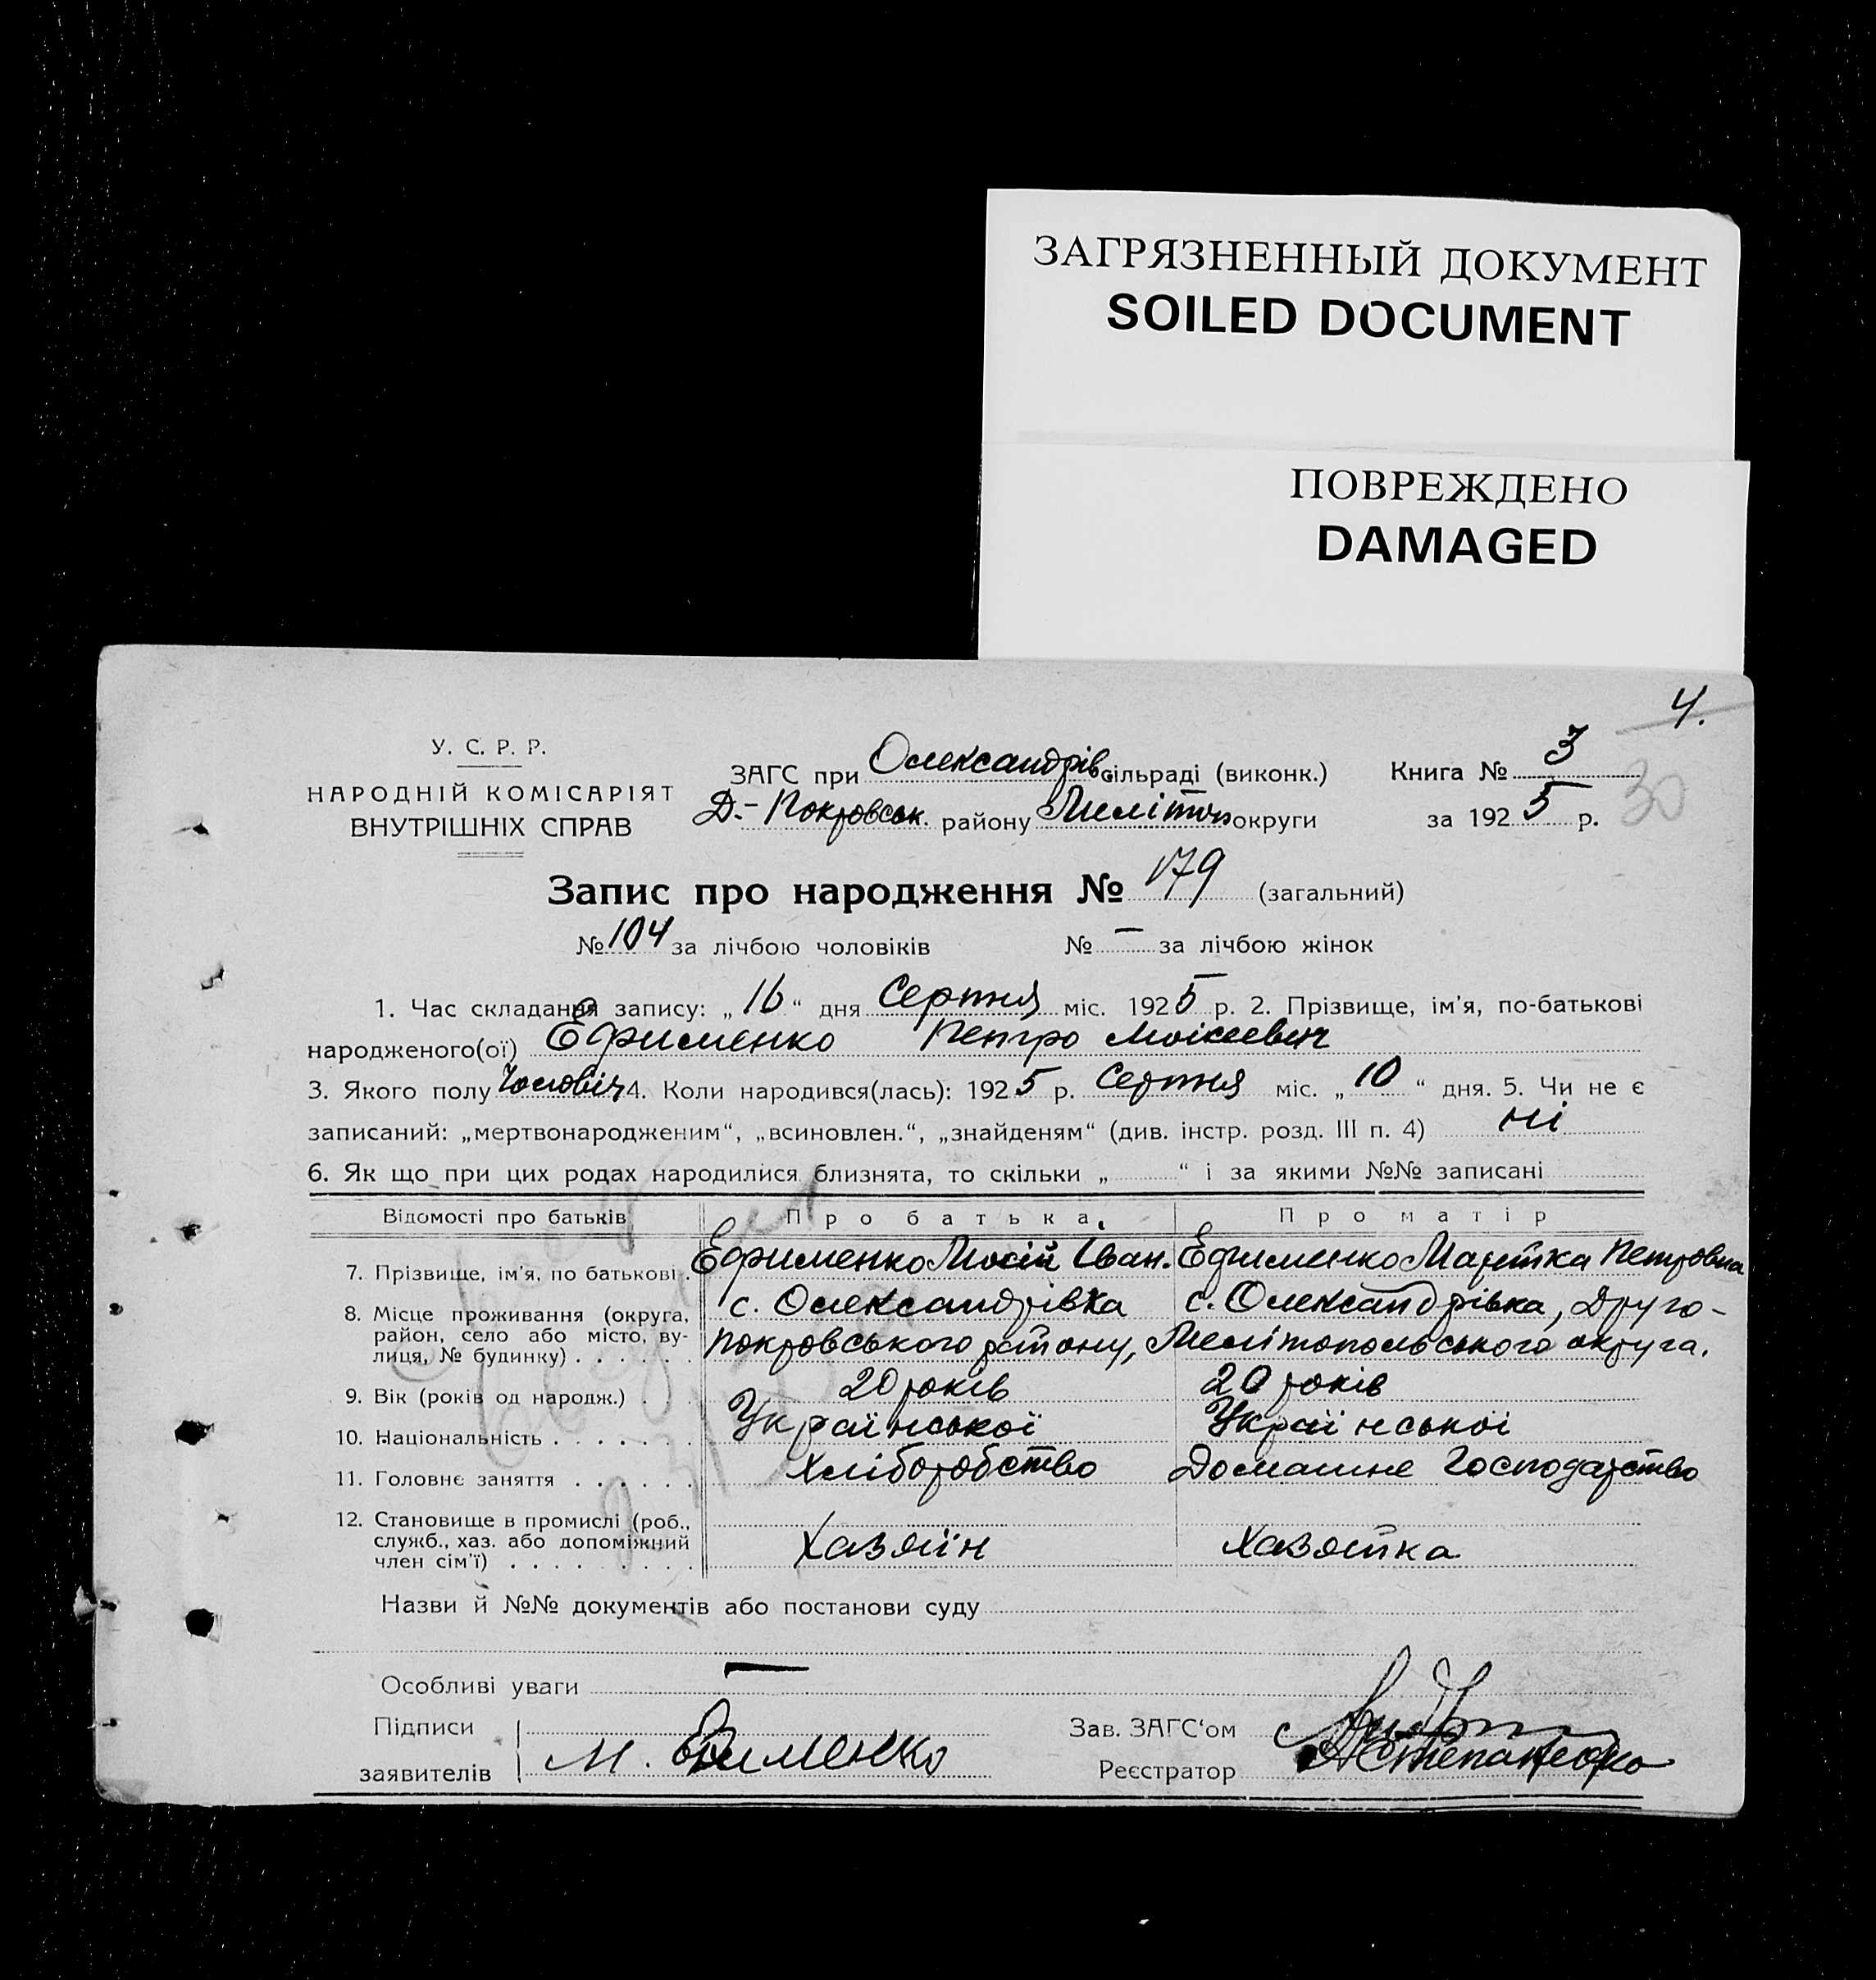 ЗАГРЯЗНЕННЫЙ ДОКУМЕНТ
SOILED DOCUMENT
ПОВРЕЖДЕНО
DAMAGED
4.
У. С. Р. Р.
НАРОДНІЙ КОМІСАРІЯТ
ВНУТРІШНІХ СПРАВ
ЗАГС при Олександрів. сільраді (виконк.) Книга № 3
30
Д.-Покровськ. району Мелітоп округи за 1925 р.
Запис про народження № 179 (загальний)
№ 104 за лічбою чоловіків № — за лічбою жінок
1. Час складання запису: „16“ дня Серпня міс. 1925 р. 2. Прізвище, ім'я, по-батькові
народженого(ої) Ефименко Петро Моісеевич
3. Якого полу Чоловіч 4. Коли народився(лась): 1925 р. Серпня міс. „10“ дня. 5. Чи не є
записаний: „мертвонародженим“, „всиновлен.“, „знайденям“ (див. інстр. розд. III п. 4) Ні
6. Як що при цих родах народилися близнята, то скільки „ “ і за якими №№ записані
Відомості про батьків Про батька Про матір
7. Прізвище, ім'я, по батькові . Ефименко Мосій Іван. Ефименко Марітка Петровна
8. Місце проживання (округа, район, село або місто, вулиця, № будинку) . . . . . . с. Олександрівка с. Олександрівка, Друго-
Покровського району, Мелітопольського округа.
9. Вік (років од народж.) . . 20 років 20 років
10. Національність . . . . . . . Української Української
11. Головнє заняття . . . . . . Хліборобство Домашне Господарство
12. Становище в промислі (роб., служб., хаз. або допоміжний член сім'ї) . . . . . . . . Хазяїн Хазяйка
Назви й №№ документів або постанови суду
Особливі уваги —
Підписи Зав. ЗАГС'ом
заявителів М. Ефименко Реєстратор